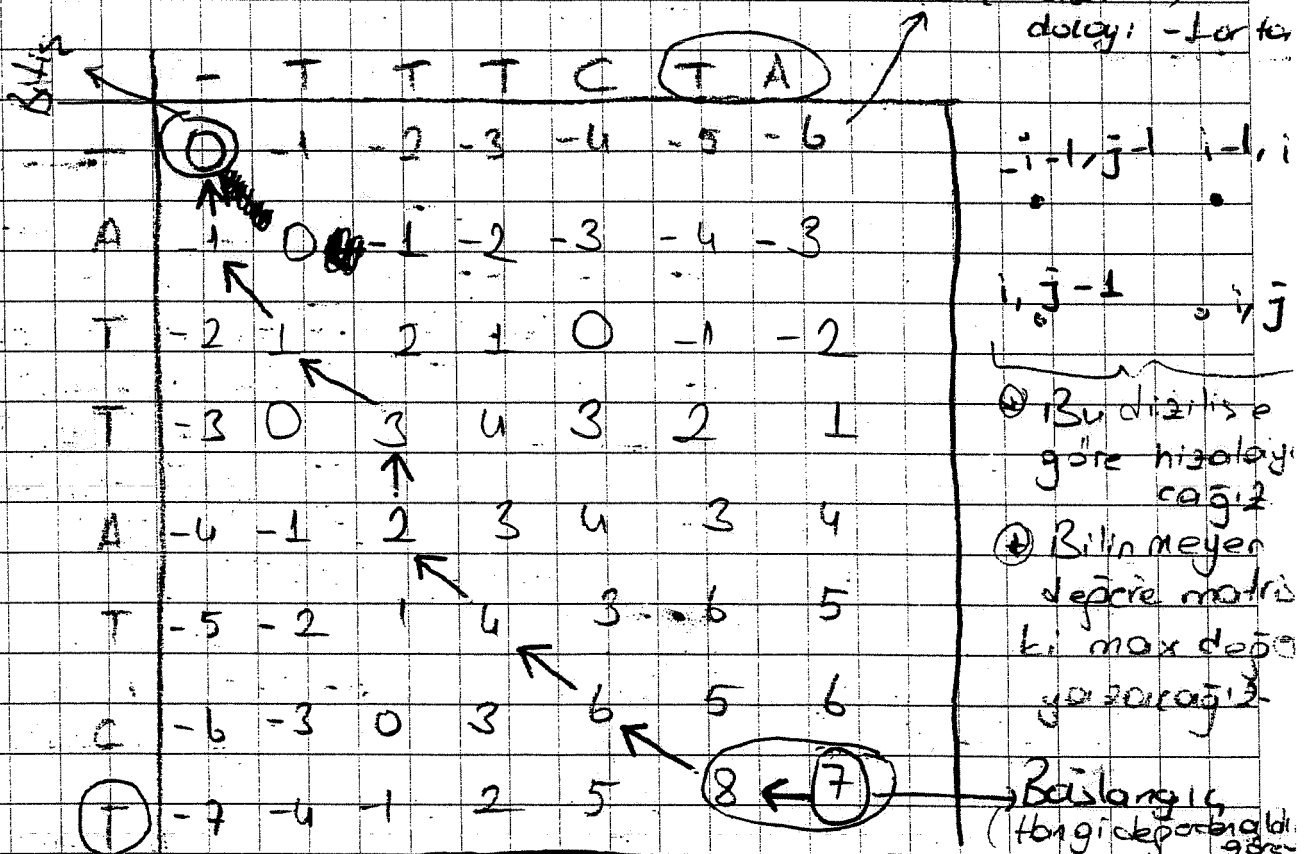 dolayı -1 artar
Bitiş
- T T T C T A
- 0 -1 -2 -3 -4 -5 -6
A -1 0 -1 -2 -3 -4 -3
T -2 1 2 1 0 -1 -2
T -3 0 3 4 3 2 1
A -4 -1 2 3 4 3 4
T -5 -2 1 4 3 6 5
C -6 -3 0 3 6 5 6
T -7 -4 -1 2 5 8 7
i-1, j-1 i-1, i
i, j-1 i, j
Bu dizilişe
göre hizalayı
cağız
Bilinmeyen
değere matris
ki max değe
yazacağız
Başlangıç